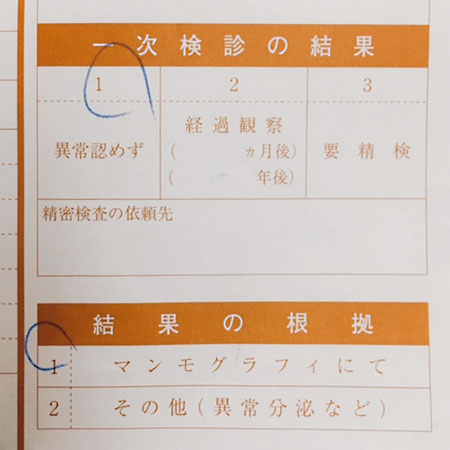 一次検診の結果
1 2 3
異常認めず
経過観察
( ヵ月後)
( 年後)
要精検
精密検査の依頼先
結果の根拠
1 マンモグラフィにて
2 その他(異常分泌など)